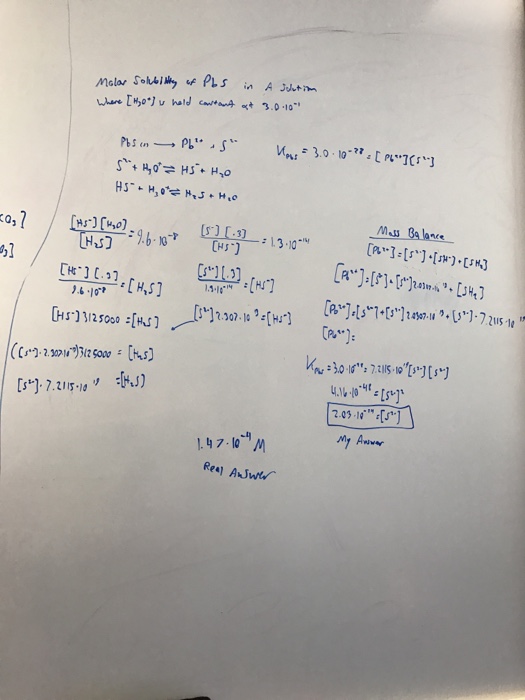 Molar Solubility of PbS in A Solution
Where [H3O+] is held constant at 3.0·10⁻¹
PbS(s) → Pb²⁺ + S²⁻
S²⁻ + H3O⁺ ⇌ HS⁻ + H2O
HS⁻ + H3O⁺ ⇌ H2S + H2O
K_PbS = 3.0·10⁻²⁸ = [Pb²⁺][S²⁻]
[HS⁻][H3O] / [H2S] = 9.6·10⁻⁸
[S⁻][.3] / [HS⁻] = 1.3·10⁻¹⁴
[HS⁻][.3] / 9.6·10⁻⁸ = [H2S]
[S²⁻][.3] / 1.3·10⁻¹⁴ = [HS⁻]
[HS⁻]3125000 = [H2S]
[S²⁻]2.307·10¹³ = [HS⁻]
([S²⁻]·2.307·10¹³)3125000 = [H2S]
[S²⁻]·7.2115·10¹⁹ = [H2S]
Mass Balance
[Pb²⁺] = [S²⁻] + [SH⁻] + [SH2]
[Pb²⁺] = [S²⁻] + [S²⁻] + [SH2]
[Pb²⁺] = [S²⁻] + [S²⁻] + [S²⁻]·7.2115·10¹⁹
[Pb²⁺] =
K_PbS = 3.0·10⁻²⁸ = 7.2115·10¹⁹[S²⁻][S²⁻]
4.16·10⁻⁴⁸ = [S²⁻]²
2.03·10⁻²⁴ = [S²⁻]
My Answer
1.47·10⁻⁴ M
Real Answer